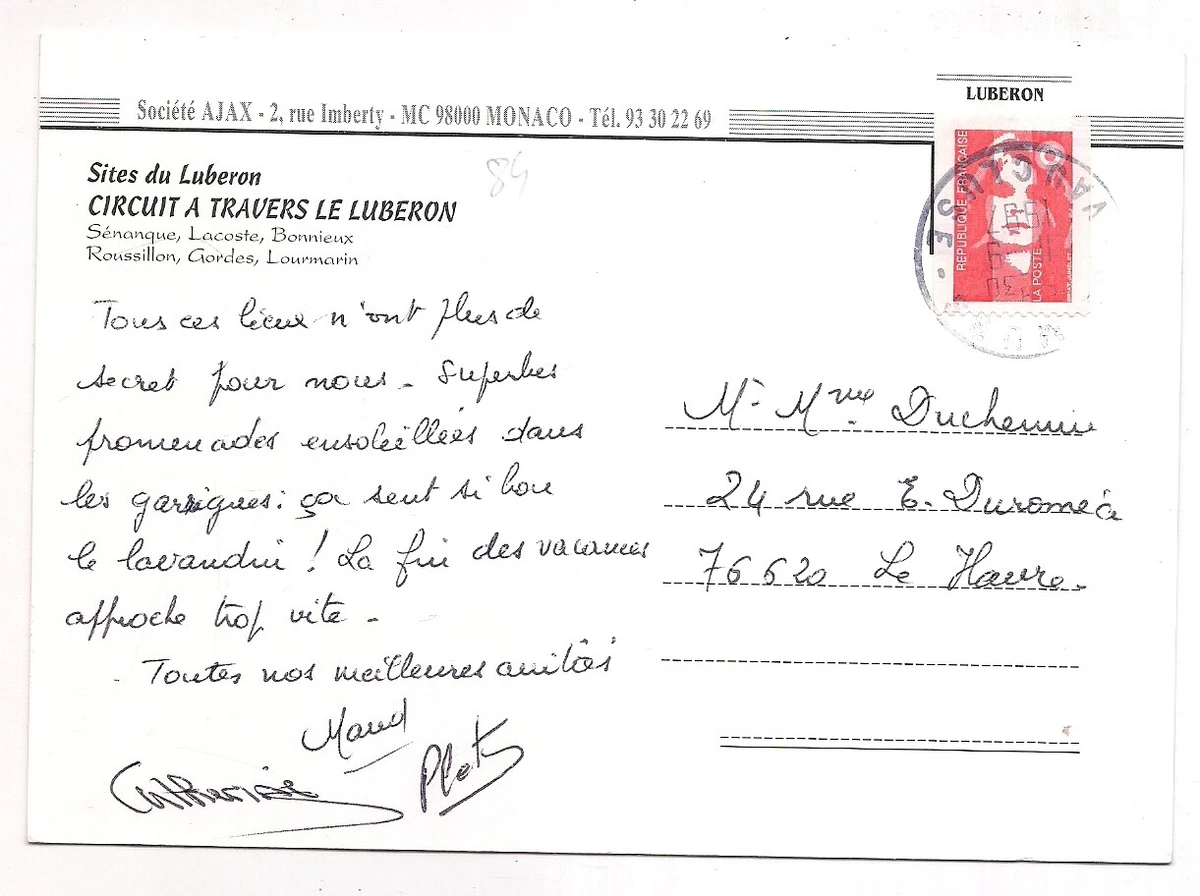 Société AJAX - 2, rue Imberty - MC 98000 MONACO - Tél. 93 30 22 69
LUBERON
84
Sites du Luberon
CIRCUIT A TRAVERS LE LUBERON
Sénanque, Lacoste, Bonnieux
Roussillon, Gordes, Lourmarin
Tous ces lieux n'ont plus de
secret pour nous - Superbes
promenades ensoleillées dans
les garrigues : ça sent si bon
le lavandin ! La fin des vacances
approche trop vite -
- Toutes nos meilleures amitiés
Maud
Catherine
REPUBLIQUE FRANÇAISE
LA POSTE
VAUCLUSE
1997
Mr Mme Duchemin
24 rue E. Duroméa
76620 Le Havre.